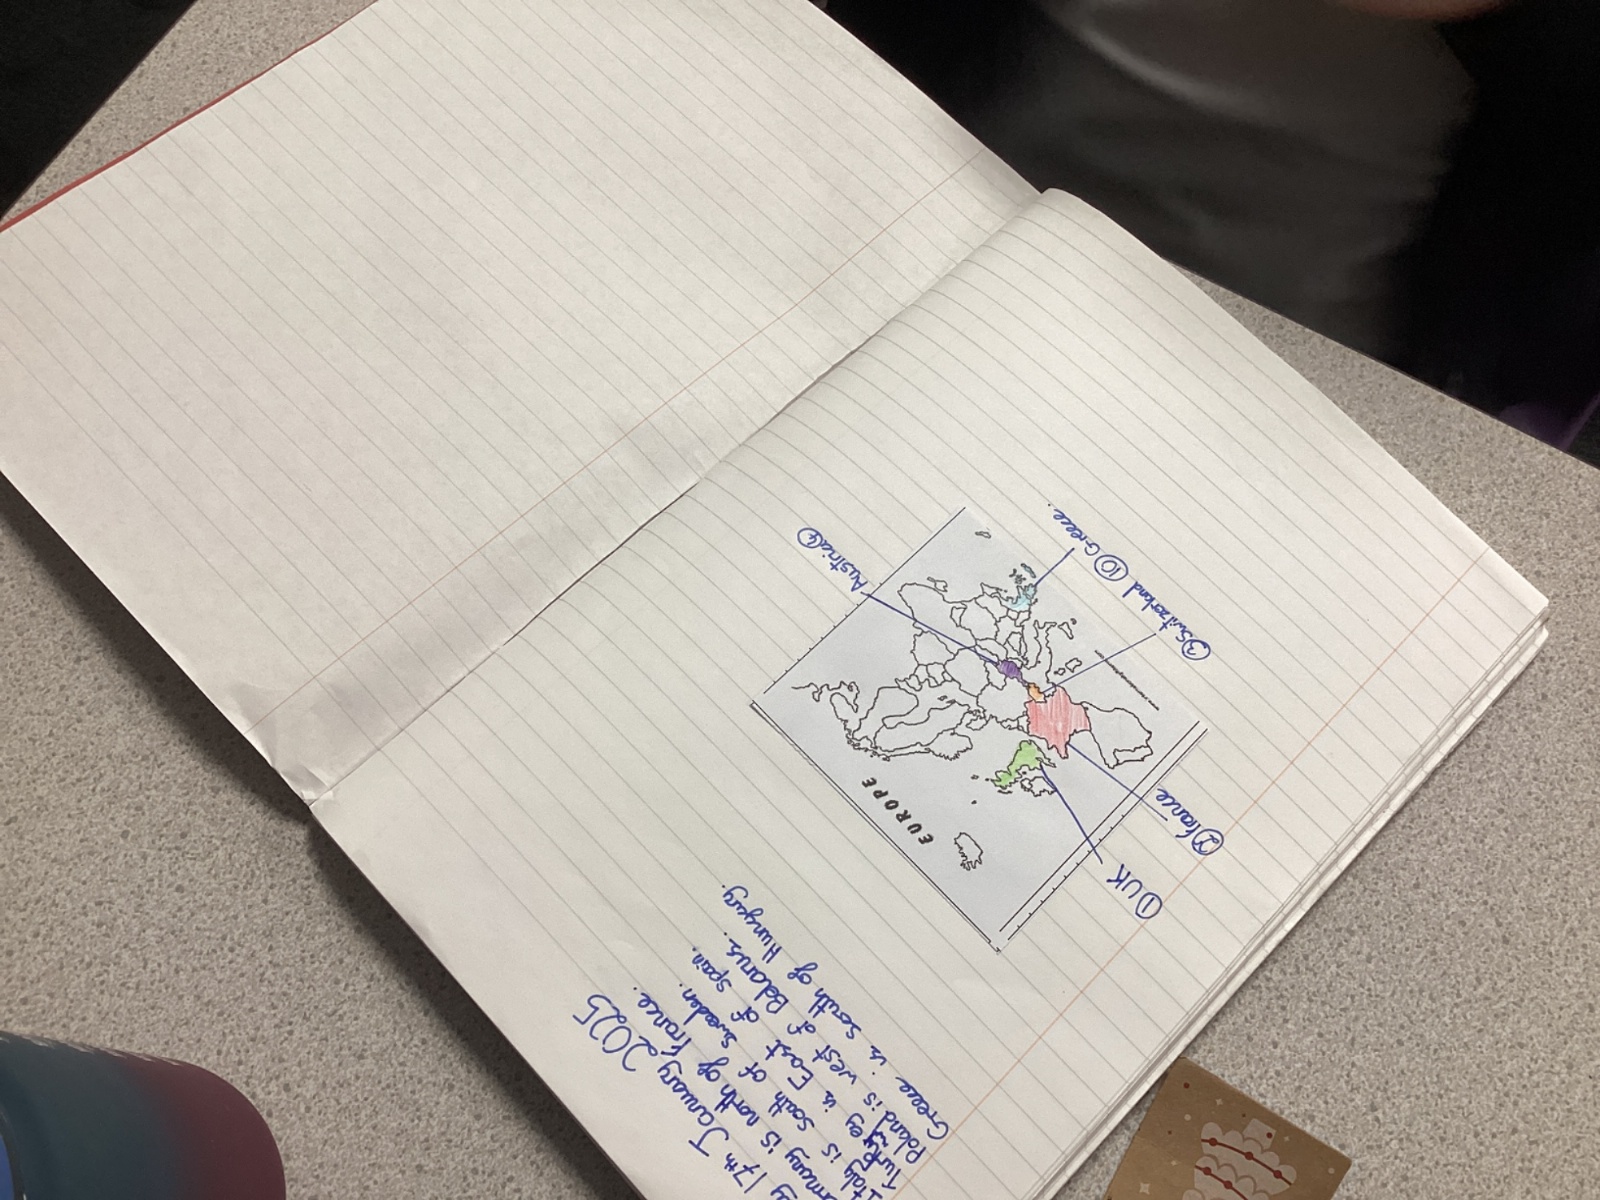 17th January 2025
is north of France.
Italy is South of Sweden.
Turkey is East of Spain.
Poland is west of Belarus.
Greece is South of Hungary.
EUROPE
① UK
② France
③ Switzerland
⑩ Greece.
Austria ④